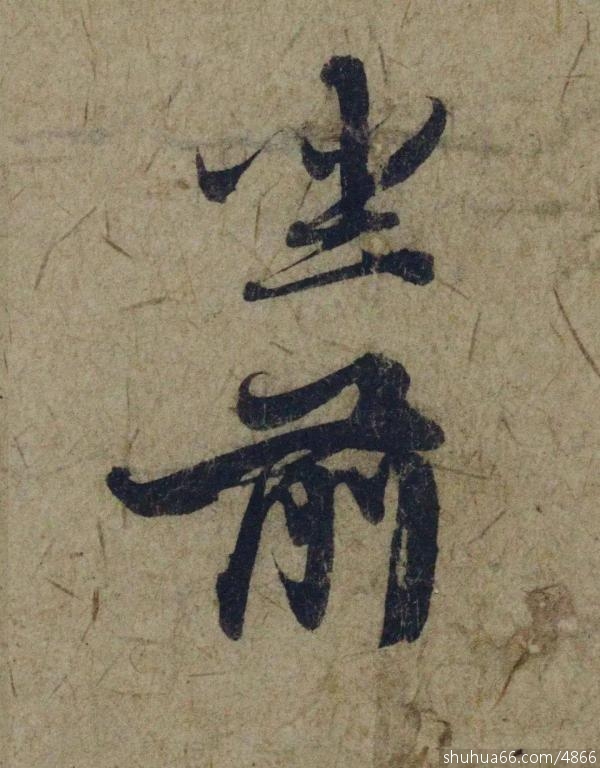 坐前
shuhua66.com/4866